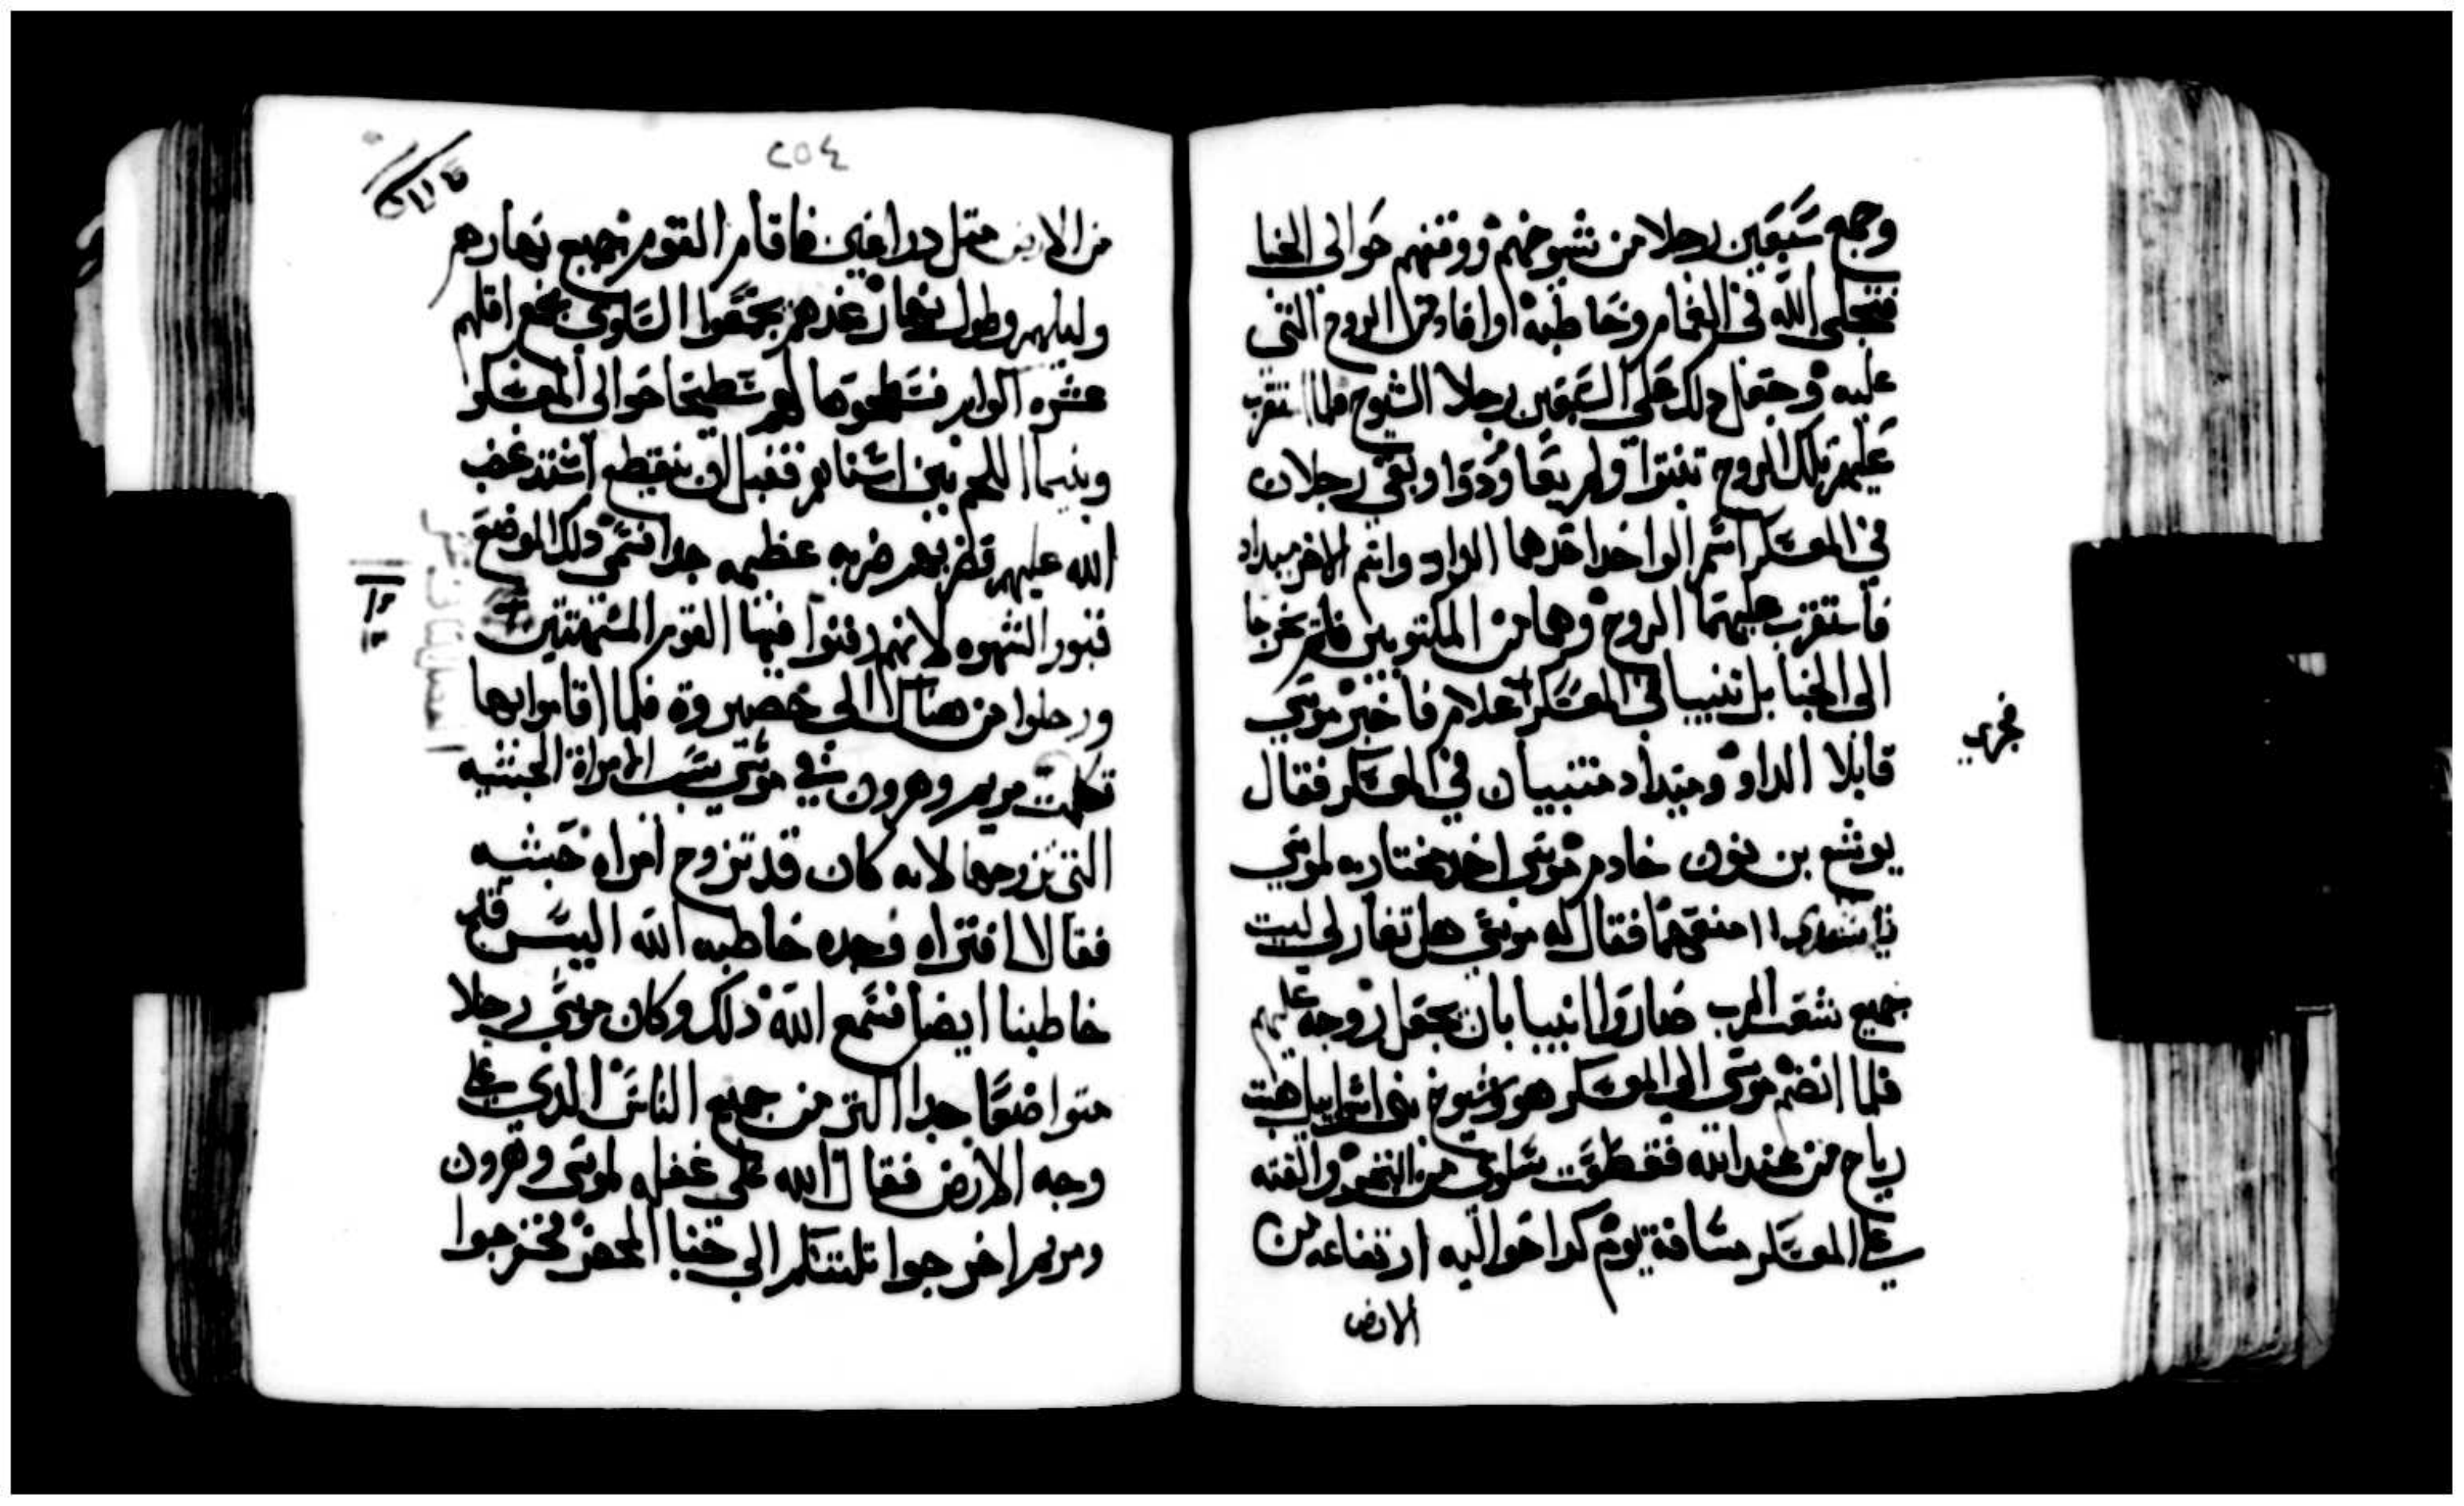 وجمع سبعين رجلا من شيوخهم ووقفهم حوالي الخبا
فتجلى الله في الغمام وخاطبه وافاد من الروح التي
عليه وجعل ذلك على السبعين رجلا الشيوخ فلما استقرت
عليهم تلك الروح تنبوا ولم يعاودوا وبقي رجلان
في المعسكر اسم الواحد احدهما الداد واسم الاخر ميداد
فاستقرت عليهما الروح وهما من المكتوبين فلم يخرجا
الى الخبا بل تنبيا في المعسكر غلام فاخبر موسي
قايلا الداد وميداد متنبيان في المعسكر فقال
يوشع بن نون خادم موسي احد مختاريه لموسي
يا سيدي امنعهما فقال له موسي هل تغار لي ليت
جميع شعب الرب صاروا انبيا بان يجعل روحه عليهم
فلما انضم موسي الى المعسكر هو وشيوخ بني اسراييل هبت
رياح من عند الله فقطعت سلوي من البحر والقته
على المعسكر مسافة يوم كدا حواليه ارتفاعه من
الارض
فخرى
٢٥٤
من الارض مثل دراعين فاقام القوم جميع نهارهم
وليلهم وطول نهار غدهم يجمعوا السلوي جمع اقلهم
عشره اكوار فسطحوها لهم سطيحا حوالى المعسكر
وبينما اللحم بين اسنانهم فقبل ان ينقطع اشتد غضب
الله عليهم فضربهم ضربه عظيمه جدا فسمي ذلك الموضع
قبور الشهوه لانهم دفنوا فيها القوم المشتهيين
ورحلوا من هناك الى حصيروة فلما اقاموا بها
تكلمت مريم وهرون في موسي بسبب المراة الحبشيه
التي تزوجها لانه كان قد تزوج امراه حبشيه
فقالا افتراه وحده خاطبه الله اليس قد
خاطبنا ايضا فسمع الله ذلك وكان موسي رجلا
متواضعا جدا اكثر من جميع الناس الذي على
وجه الارض فقال الله على غفله لموسي وهرون
ومريم اخرجوا ثلثتكم الي خبا المحضر فخرجوا